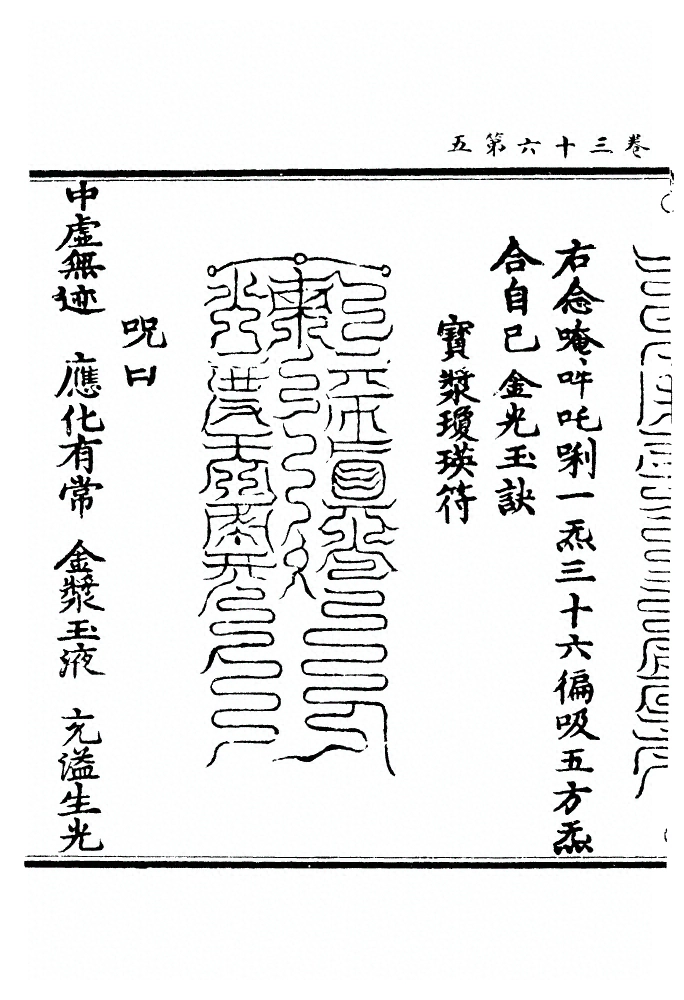 卷三十六第五
右念唵吽吒唎一炁三十六徧吸五方炁
合自己金光玉訣
寶漿瓊瑛符
呪曰
中虛無迹 應化有常 金漿玉液 充溢生光